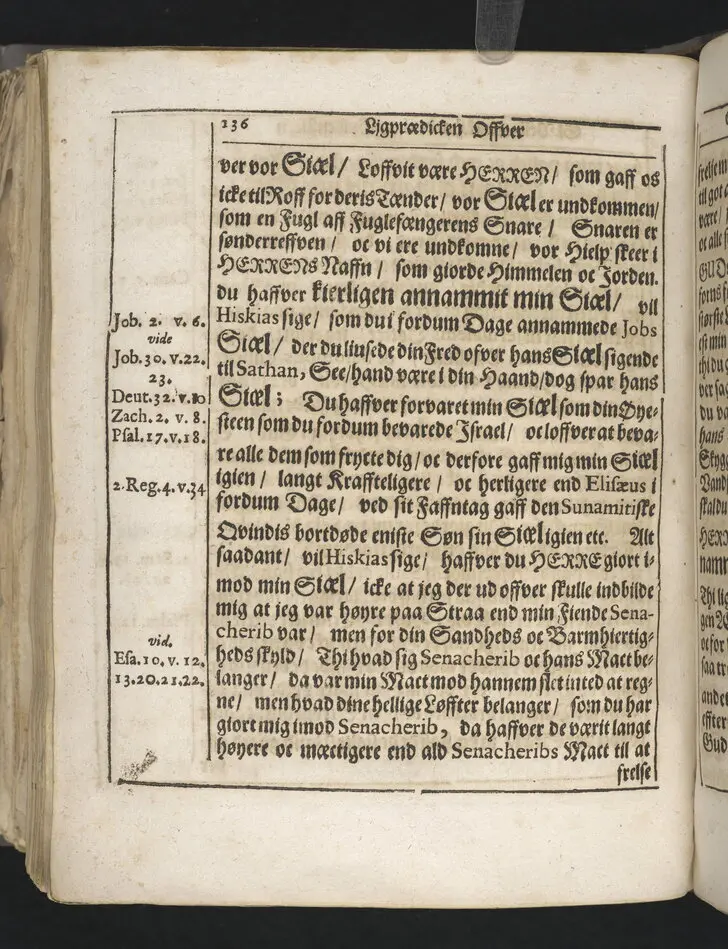 136 Ligprædicken Offver
ver vor Siæl/ Loffvit være HERREN/ som gaff os
icke til Roff for deris Tænder/ vor Siæl er undkommen/
som en Fugl aff Fuglefængerens Snare/ Snaren er
sønderreffven/ oc vi ere undkomne/ vor Hielp skeer i
HERRENS Naffn/ som giorde Himmelen oc Jorden.
du haffver kierligen annammit min Siæl/ vil
Hiskias sige/ som du i fordum Dage annammede Jobs
Siæl/ der du liusede din Fred ofver hans Siæl sigende
til Sathan, See/ hand være i din Haand/ dog spar hans
Siæl; Du haffver forvaret min Siæl som din Øye-
steen som du fordum bevarede Israel/ oc loffver at beva-
re alle dem som frycte dig/ oc derfore gaff mig min Siæl
igien/ langt Krafteligere/ oc herligere end Elisæus i
fordum Dage/ ved sit Faffntag gaff den Sunamitiske
Qvindis bortdøde eniste Søn sin Siæl igien etc. Alt
saadant/ vil Hiskias sige/ haffver du HERRE giort i-
mod min Siæl/ icke at jeg der ud offver skulle indbilde
mig at jeg var høyre paa Straa end min Fiende Sena-
cherib var/ men for din Sandheds oc Barmhiertig-
heds skyld/ Thi hvad sig Senacherib oc hans Mact be-
langer/ da var min Mact mod hannem slet inted at reg-
ne/ men hvad dine hellige Løffter belanger/ som du har
giort mig imod Senacherib, da haffver de værit langt
høyere oc mæctigere end ald Senacheribs Mact til at
frelse
Job. 2. v. 6.
vide
Job. 30. v. 22.
23.
Deut. 32. v. 10
Zach. 2. v. 8.
Psal. 17. v. 18.
2. Reg. 4. v. 34
vid.
Esa. 10. v. 12.
13. 20. 21. 22.